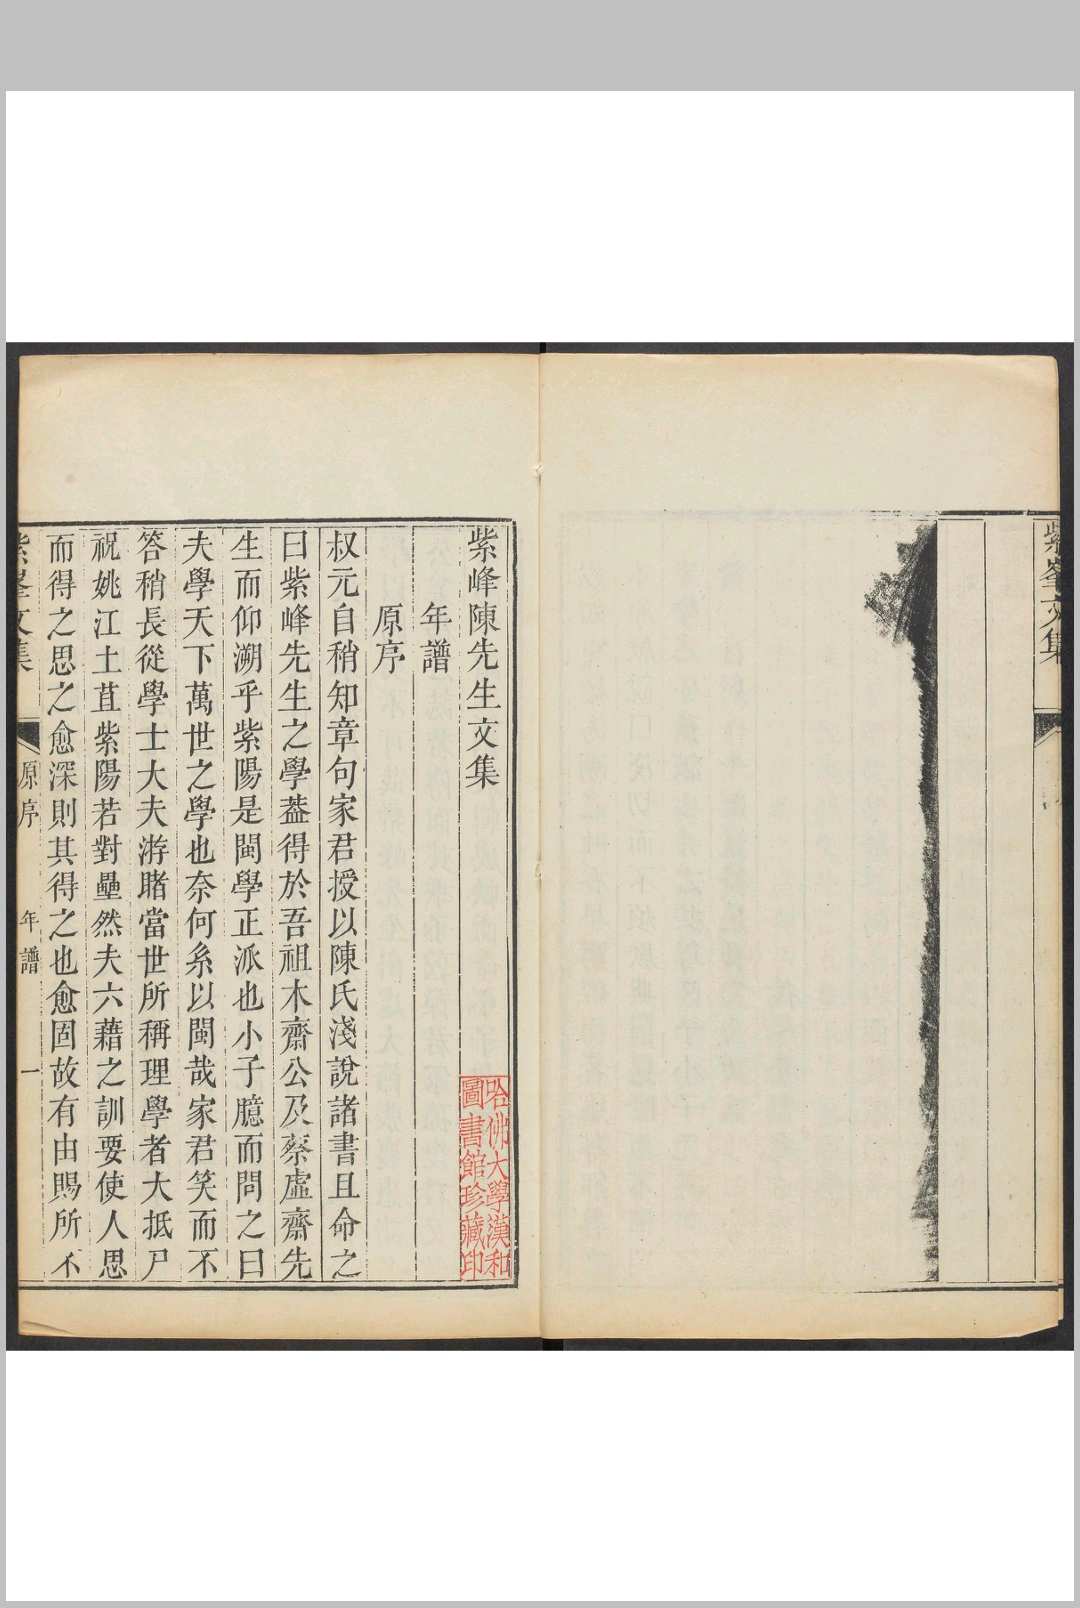 紫峯文集
紫峰陳先生文集
年譜
原序
叔元自稍知章句家君授以陳氏淺說諸書且命之
曰紫峰先生之學葢得於吾祖木齋公及蔡虛齋先
生而仰溯乎紫陽是閩學正派也小子臆而問之曰
夫學天下萬世之學也奈何系以閩哉家君笑而不
答稍長從學士大夫游賭當世所稱理學者大抵尸
祝姚江土苴紫陽若對壘然夫六藉之訓要使人思
而得之思之愈深則其得之也愈固故有由賜所不
紫峯文集
原序
年譜
一
哈佛大學漢和
圖書館珍藏印